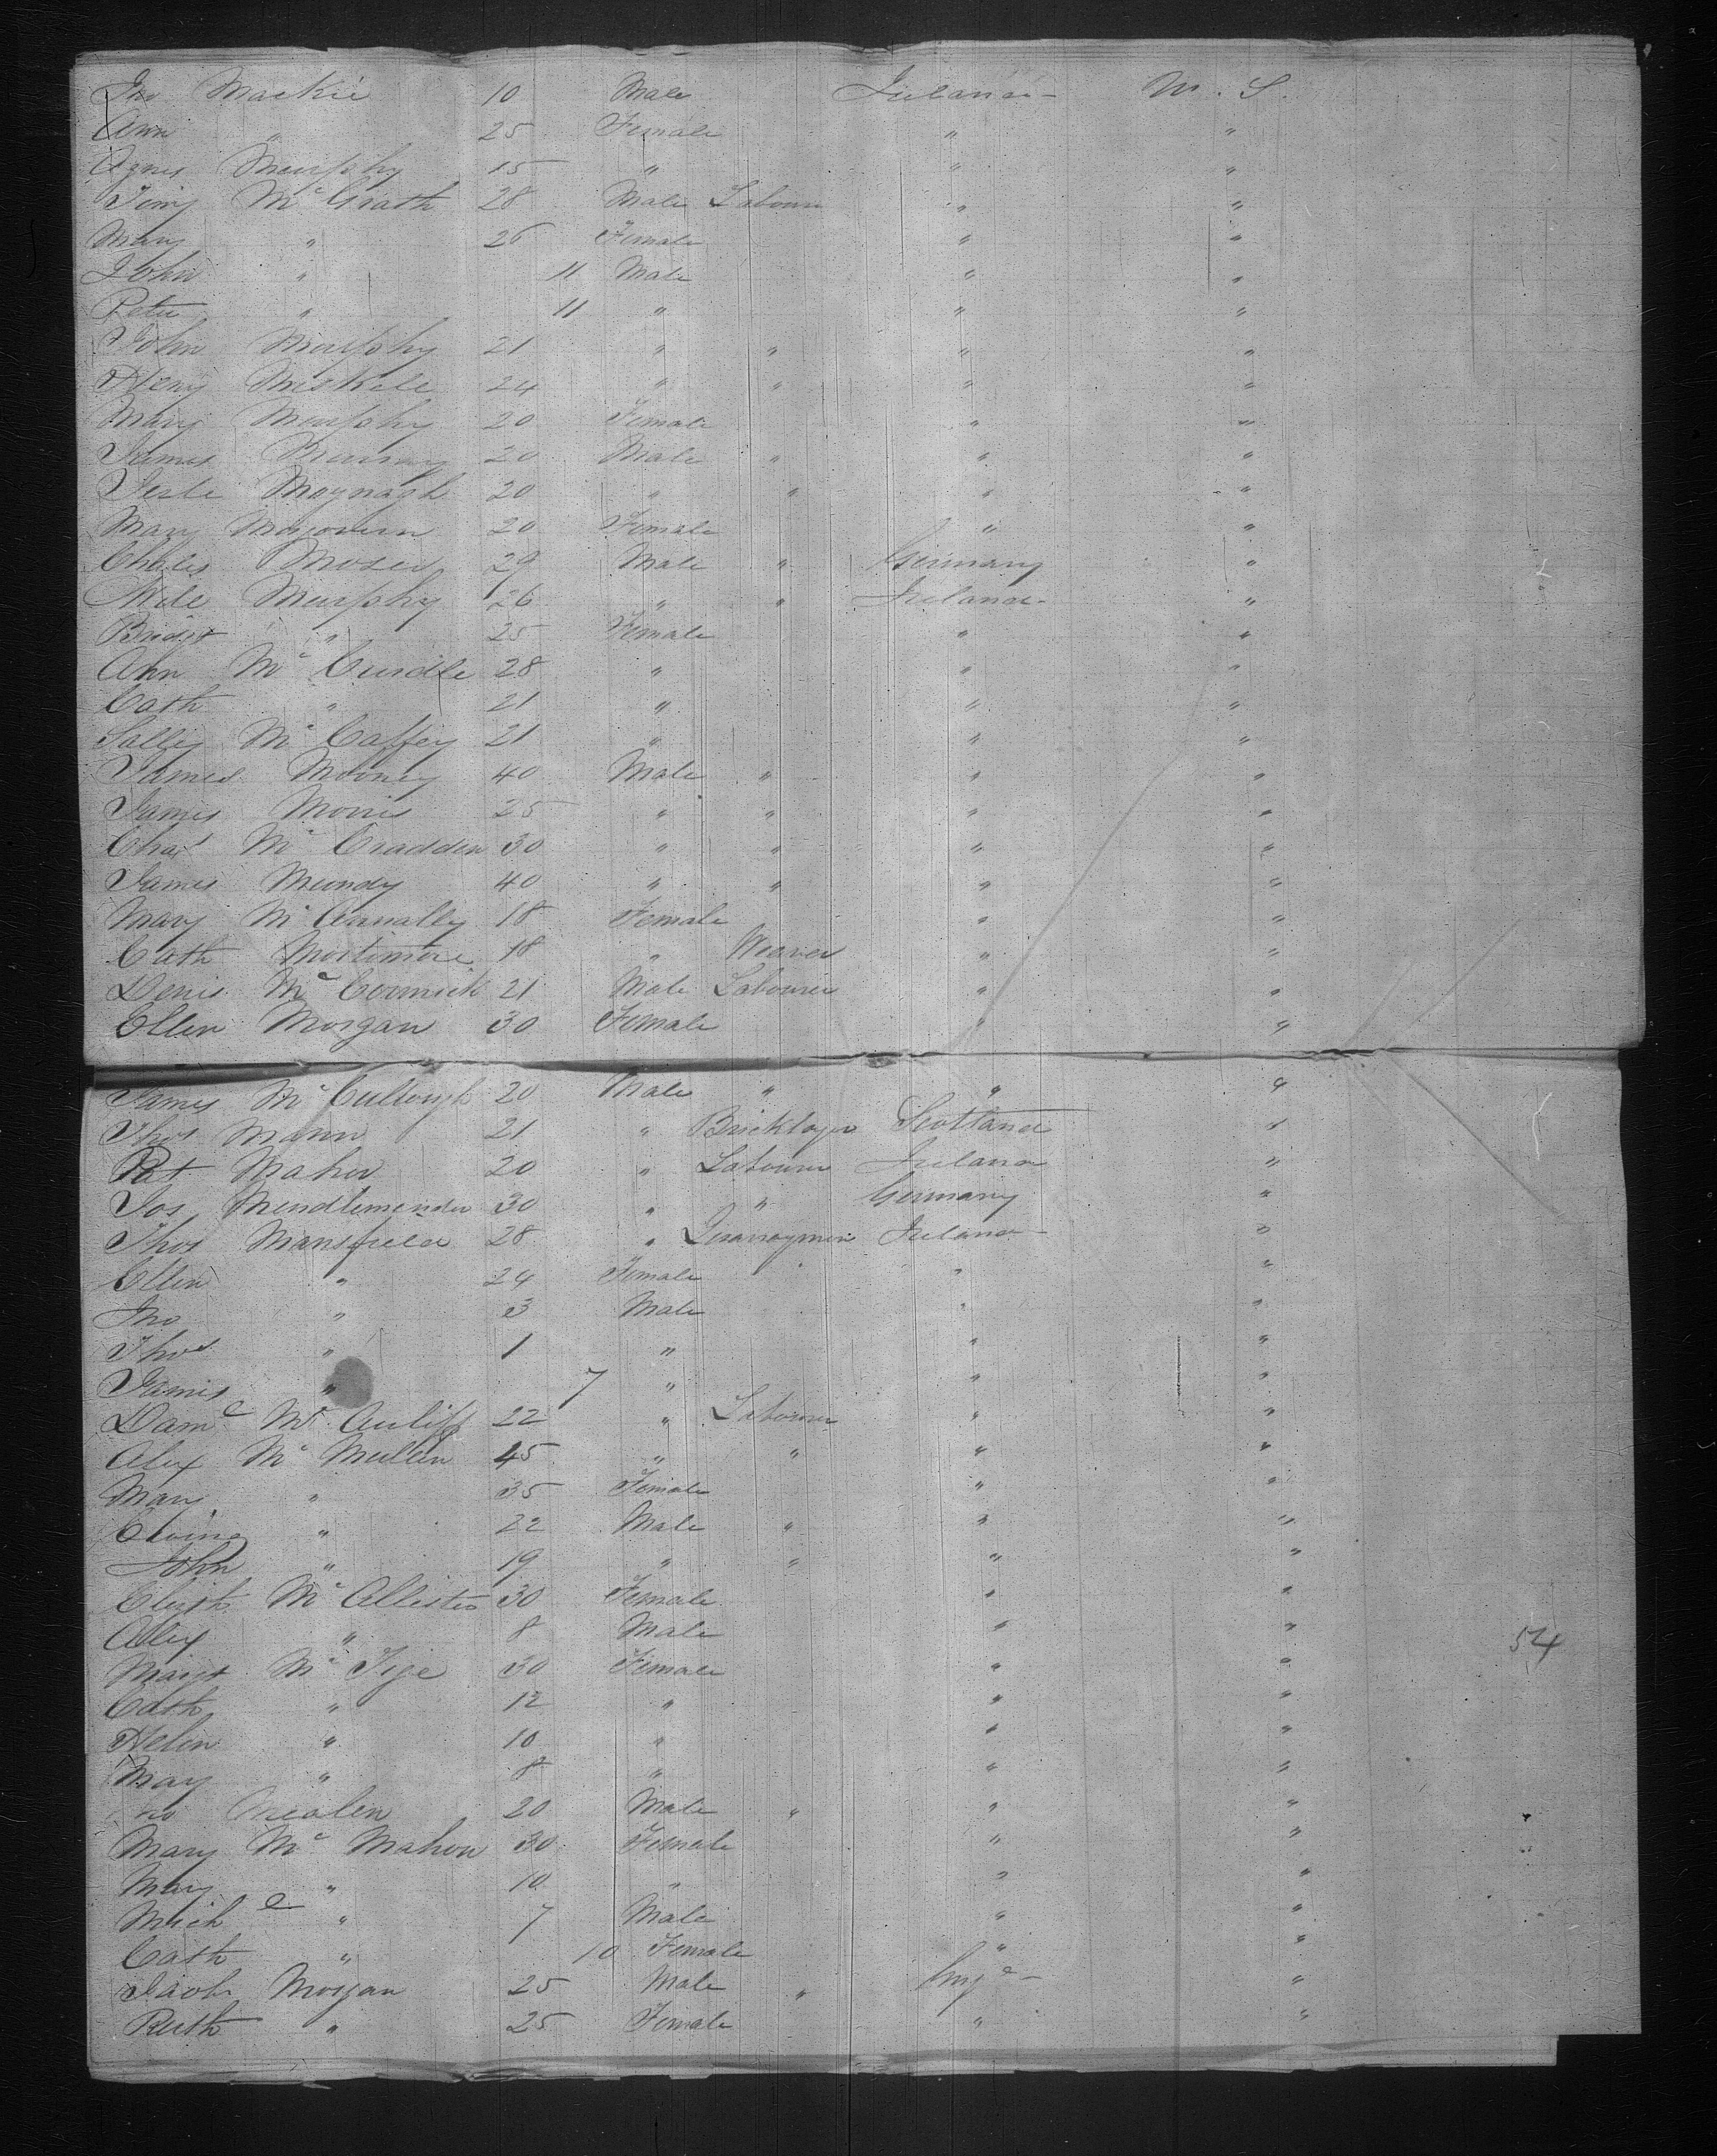 Jno Mackie 10 Male Ireland U. S.
Ann " 25 Female " "
Agnes Murphy 15 " " "
Jimy Mc Grath 28 Male Labourer " "
Mary " 26 Female " "
John " 11 Male " "
Peter " 11 " " "
John Murphy 21 " " " "
Henry 24 " " " "
Mary Murphy 20 Female " "
James Murray 20 Male " " "
Maynagh 20 " " " "
Mary McGovern 20 Female " "
Charles Moser 29 Male " Germany "
Murphy 26 " " Ireland "
Bridget " 25 Female " "
Ann Mc Curdle 28 " " "
Cath " 21 " " "
Sally Mc Caffey 21 " " "
James Mooney 40 Male " " "
James Morris 25 " " " "
Chas Mc Cradden 30 " " " "
James Mundy 40 " " " "
Mary Mc Annally 18 Female " "
Cath Mortimore 18 " Weaver " "
Denis Mc Cormick 21 Male Labourer " "
Ellen Morgan 30 Female " "
James Mc Cullough 20 Male " " "
Thos Mann 21 " Bricklayer Scotland "
Pat Maher 20 " Labourer Ireland "
Jos Mendlemender 30 " " Germany "
Thos Mansfield 28 " Ireland "
Ellen " 24 Female " "
Jno " 3 Male " "
Thos " 1 " " "
James " 7 " " "
Danl Mc Auliff 22 " Labourer " "
Alex Mc Mullen 45 " " " "
Mary " 35 Female " "
Ewing " 22 Male " " "
John " 19 " " " "
Elizth Mc Allister 30 Female " "
Alex " 8 Male " " 54
Margt Mc Tige 30 Female " "
Cath " 12 " " "
Helen " 10 " " "
Mary " 8 " " "
Jno Mealen 20 Male " " "
Mary Mc Mahon 30 Female " "
Mary " 10 " " "
Michl " 7 Male " "
Cath " 10 Female " "
Jacob Morgan 25 Male " Engd "
Ruth " 25 Female " "